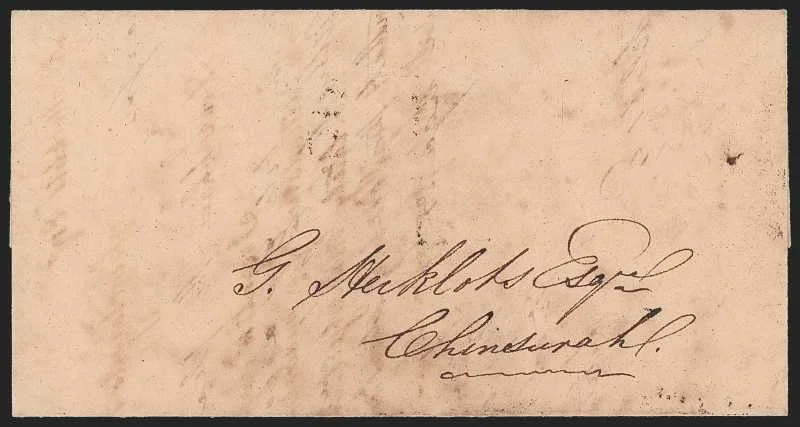 G. Herklots Esqre
Chinsurah.